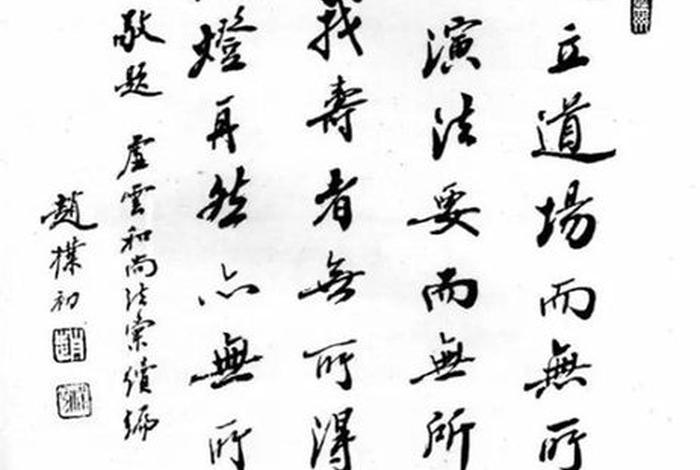 立道場而無所
演法要而無所
我壽者無所得
燈再然亦無所
敬題 虛雲和尚法彙續編
趙樸初